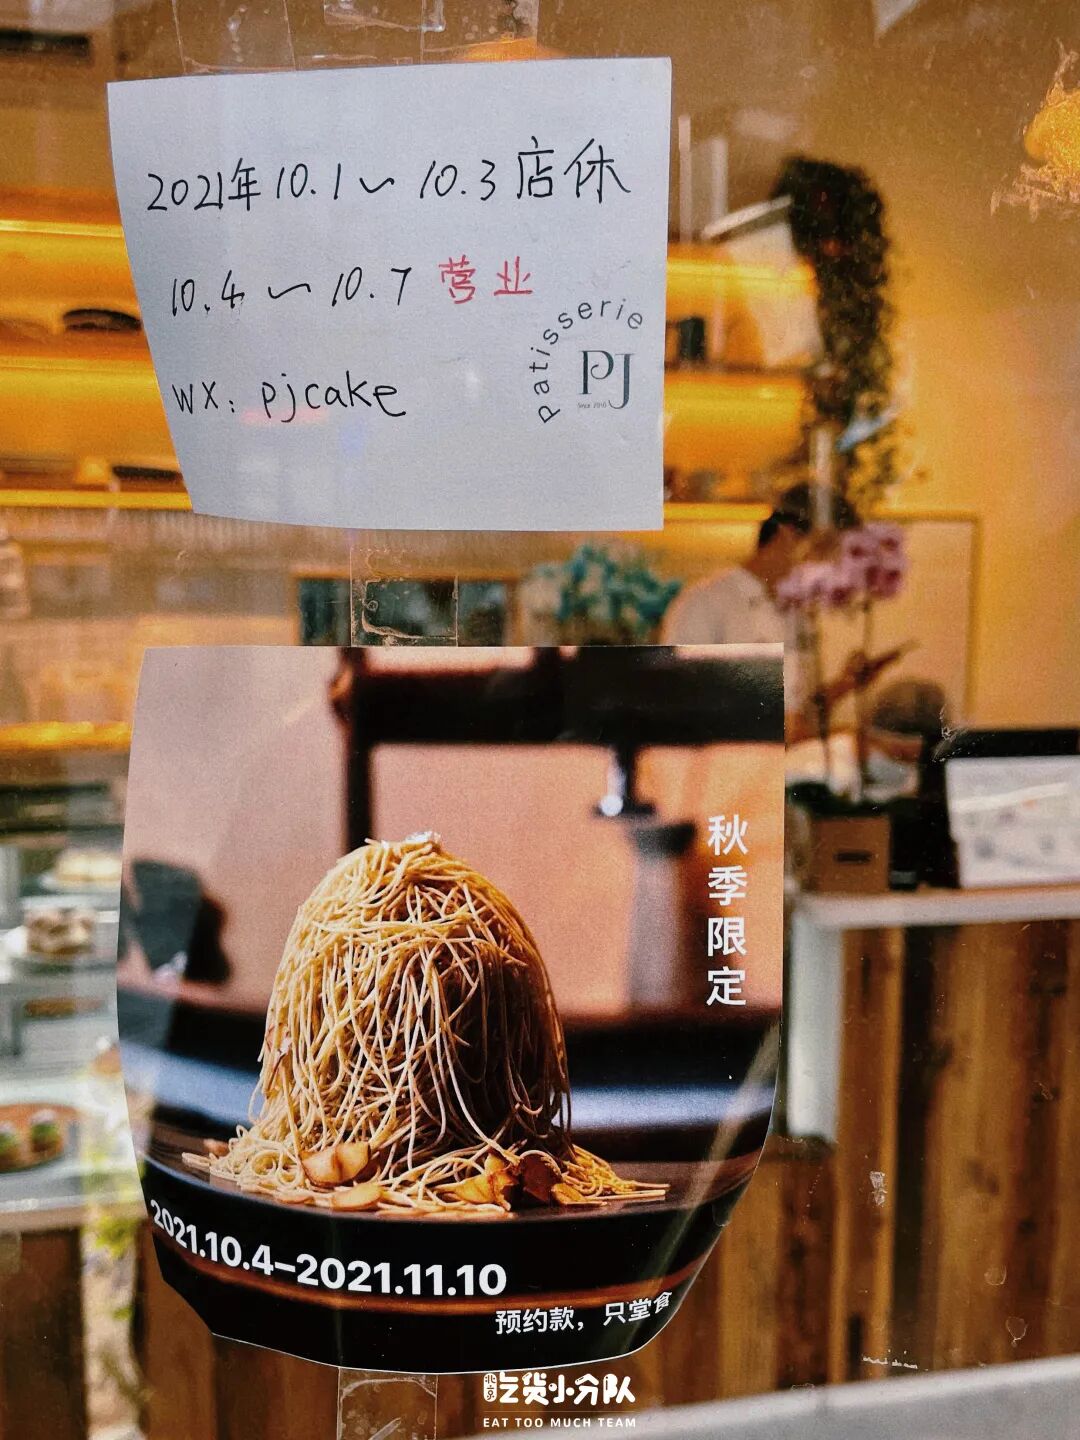 2021年10.1~10.3店休
10.4~10.7 营业
wx: pjcake
Patisserie
PJ
Since 2010
秋季限定
2021.10.4–2021.11.10
预约款，只堂食
北京
吃货小分队
EAT TOO MUCH TEAM